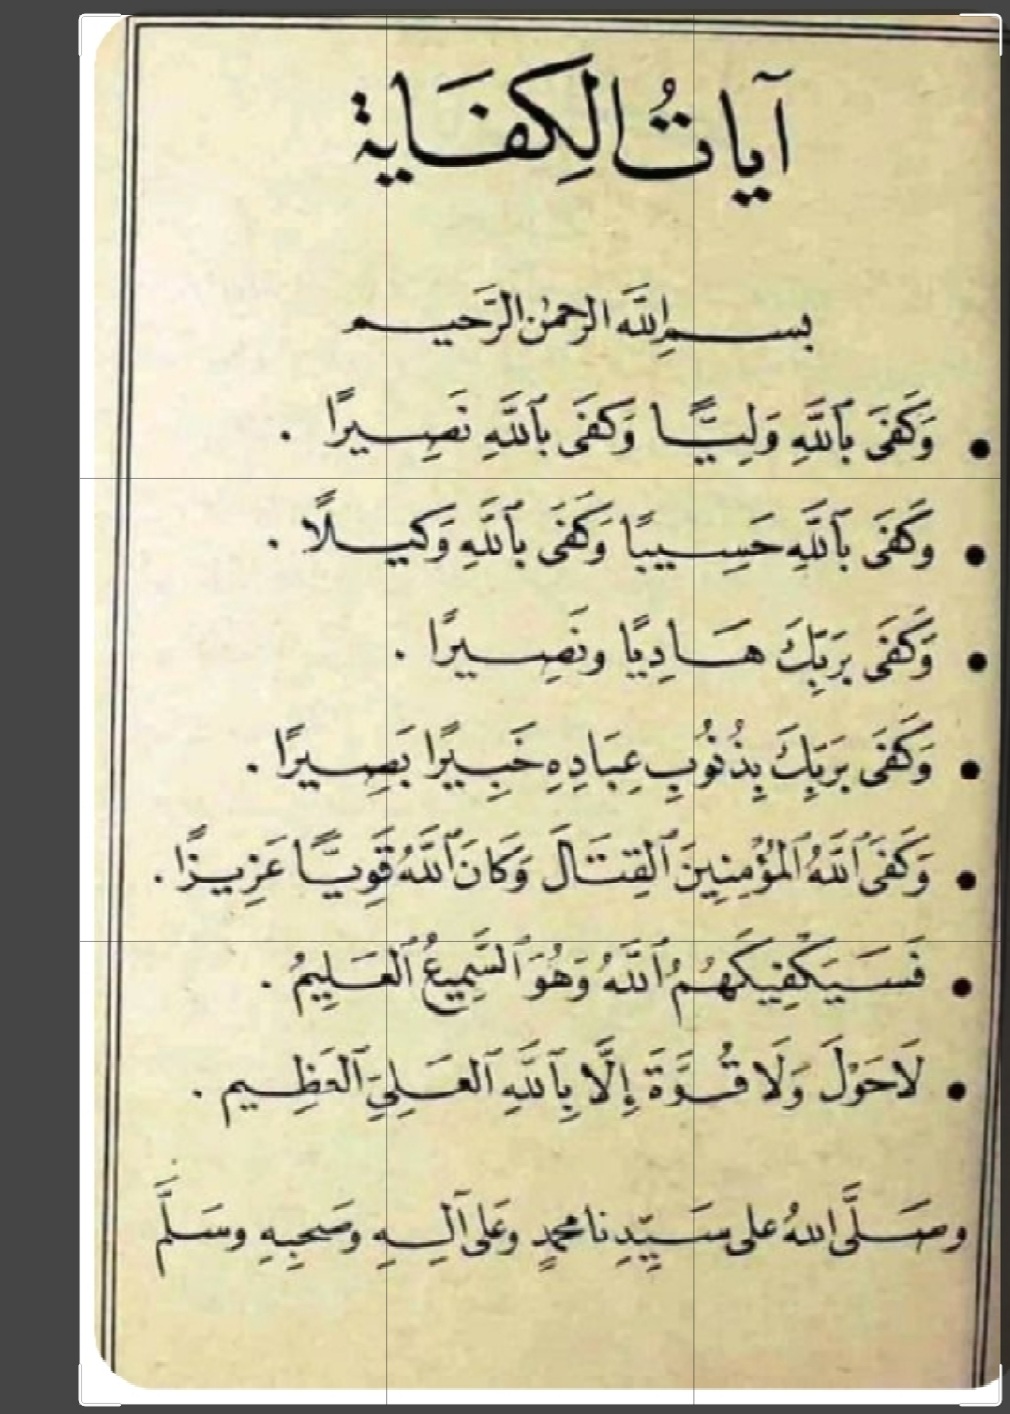 آيَاتُ الْكِفَايَة
بسم الله الرحمن الرَّحيم
• وَكَفَى بِٱللَّهِ وَلِيًّا وَكَفَى بِٱللَّهِ نَصِيرًا .
• وَكَفَى بِٱللَّهِ حَسِيبًا وَكَفَى بِٱللَّهِ وَكِيلًا .
• وَكَفَى بِرَبِّكَ هَادِيًا ونَصِيرًا .
• وَكَفَى بِرَبِّكَ بِذُنُوبِ عِبَادِهِ خَبِيرًا بَصِيرًا .
• وَكَفَى ٱللَّهُ ٱلمُؤْمِنِينَ ٱلْقِتَالَ وَكَانَ ٱللَّهُ قَوِيًّا عَزِيزًا .
• فَسَيَكْفِيكَهُمُ ٱللَّهُ وَهُوَ ٱلسَّمِيعُ ٱلْعَلِيمُ .
• لَاحَوْلَ وَلَا قُوَّةَ إِلَّا بِٱللَّهِ ٱلعَلِيِّ ٱلعَظِيم .
وصَلَّى اللهُ على سَيِّدِنا محمدٍ وعَلى آلِهِ وصَحبِهِ وسَلَّم